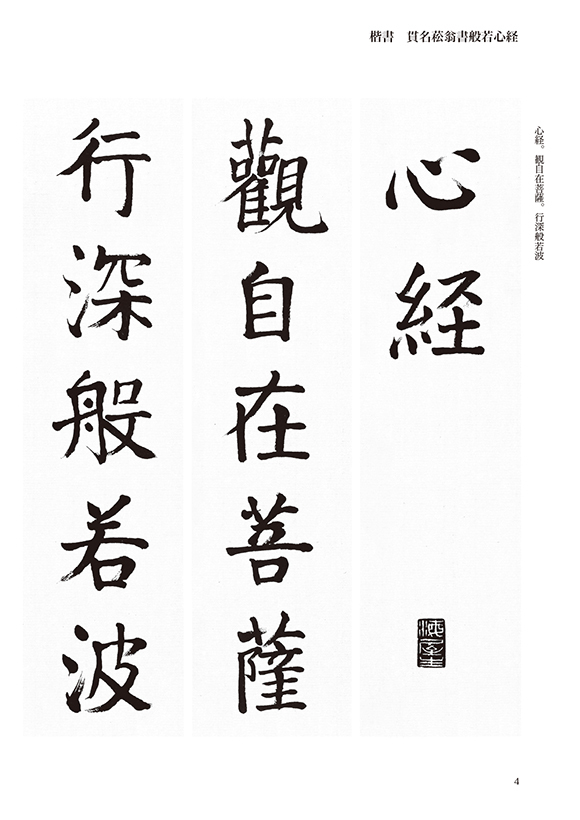 楷書　貫名菘翁書般若心経
心経。観自在菩薩。行深般若波
心経
觀自在菩薩
行深般若波
4